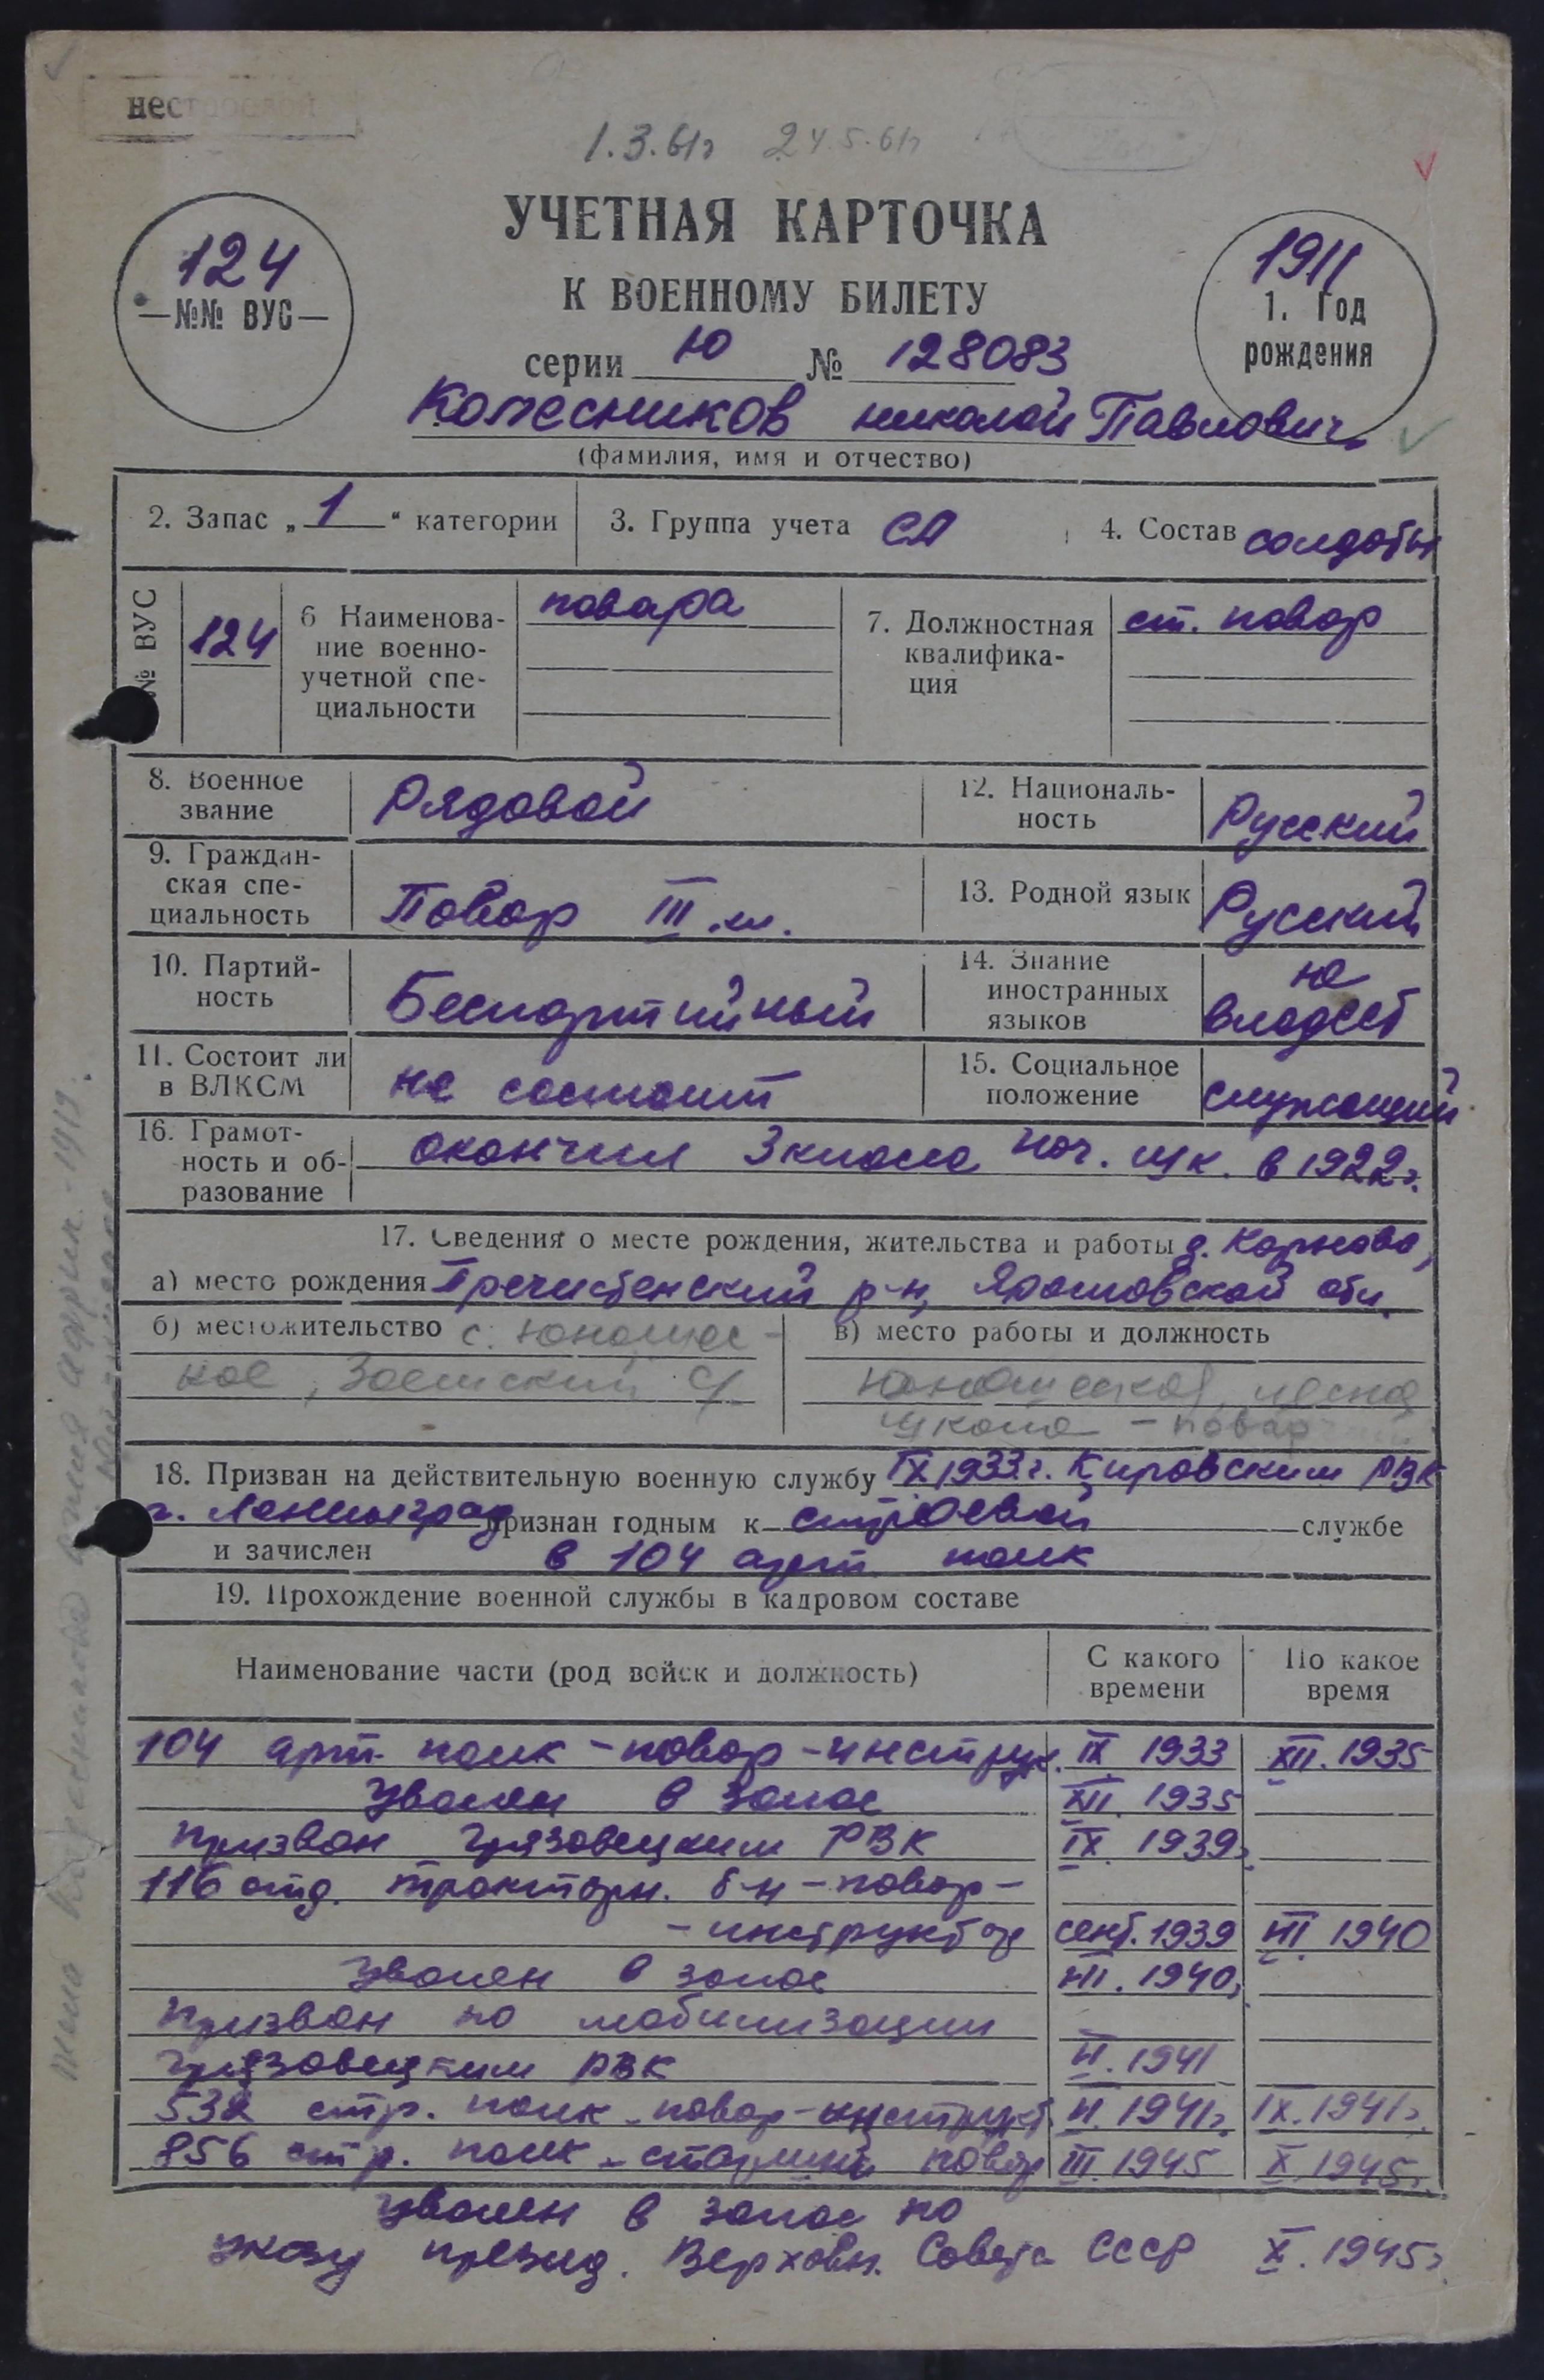 нестроевой
1.3.61г 24.5.61г
УЧЕТНАЯ КАРТОЧКА
К ВОЕННОМУ БИЛЕТУ
124
—№№ ВУС—
1911
1. Год
рождения
серии Ю № 128083
Колесников николай Павлович
(фамилия, имя и отчество)
2. Запас „ 1 “ категории
3. Группа учета СА
4. Состав солдаты
№ ВУС
124
6 Наименова-
ние военно-
учетной спе-
циальности
повара
7. Должностная
квалифика-
ция
ст. повар
8. Военное
звание
Рядовой
12. Националь-
ность
Русский
9. Граждан-
ская спе-
циальность
Повар III кл.
13. Родной язык
Русский
10. Партий-
ность
Беспартийный
14. Знание
иностранных
языков
не
владеет
11. Состоит ли
в ВЛКСМ
не состоит
15. Социальное
положение
служащий
16. Грамот-
ность и об-
разование
окончил 3 класса нач. шк. в 1922г.
17. Сведения о месте рождения, жительства и работы д.
а) место рождения Пречистенский р-н, Ярославской обл.
б) местожительство с. Юношес-
кое, с/
в) место работы и должность
Юношеская
школа - повар
18. Призван на действительную военную службу IX 1933 г. Кировским РВК
г. Ленинград признан годным к строевой службе
и зачислен в 104 арт. полк
19. Прохождение военной службы в кадровом составе
Наименование части (род войск и должность)
С какого
времени
По какое
время
104 арт. полк - повар - инструк. IX 1933 XII. 1935
Уволен в запас XII. 1935
призван Грязовецким РВК IX. 1939г.
116 отд. тракторн. б-н - повар -
- инструктор сент. 1939 VII 1940
Уволен в запас VII. 1940г.
Призван по мобилизации
Грязовецким РВК VI. 1941
532 стр. полк - повар - инструкт. VI. 1941г. IX. 1941г.
856 стр. полк - старший повар III. 1945 X. 1945г.
Уволен в запас по
указу презид. Верховн. Совета СССР X. 1945г.